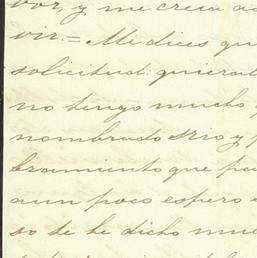 vor, y me creia ac
vir.= Mi dices qu
solicitud: quiera
no tengo mucho
nombrado srio y p
bramiento que pa
aun poco espero
so te he dicho muc